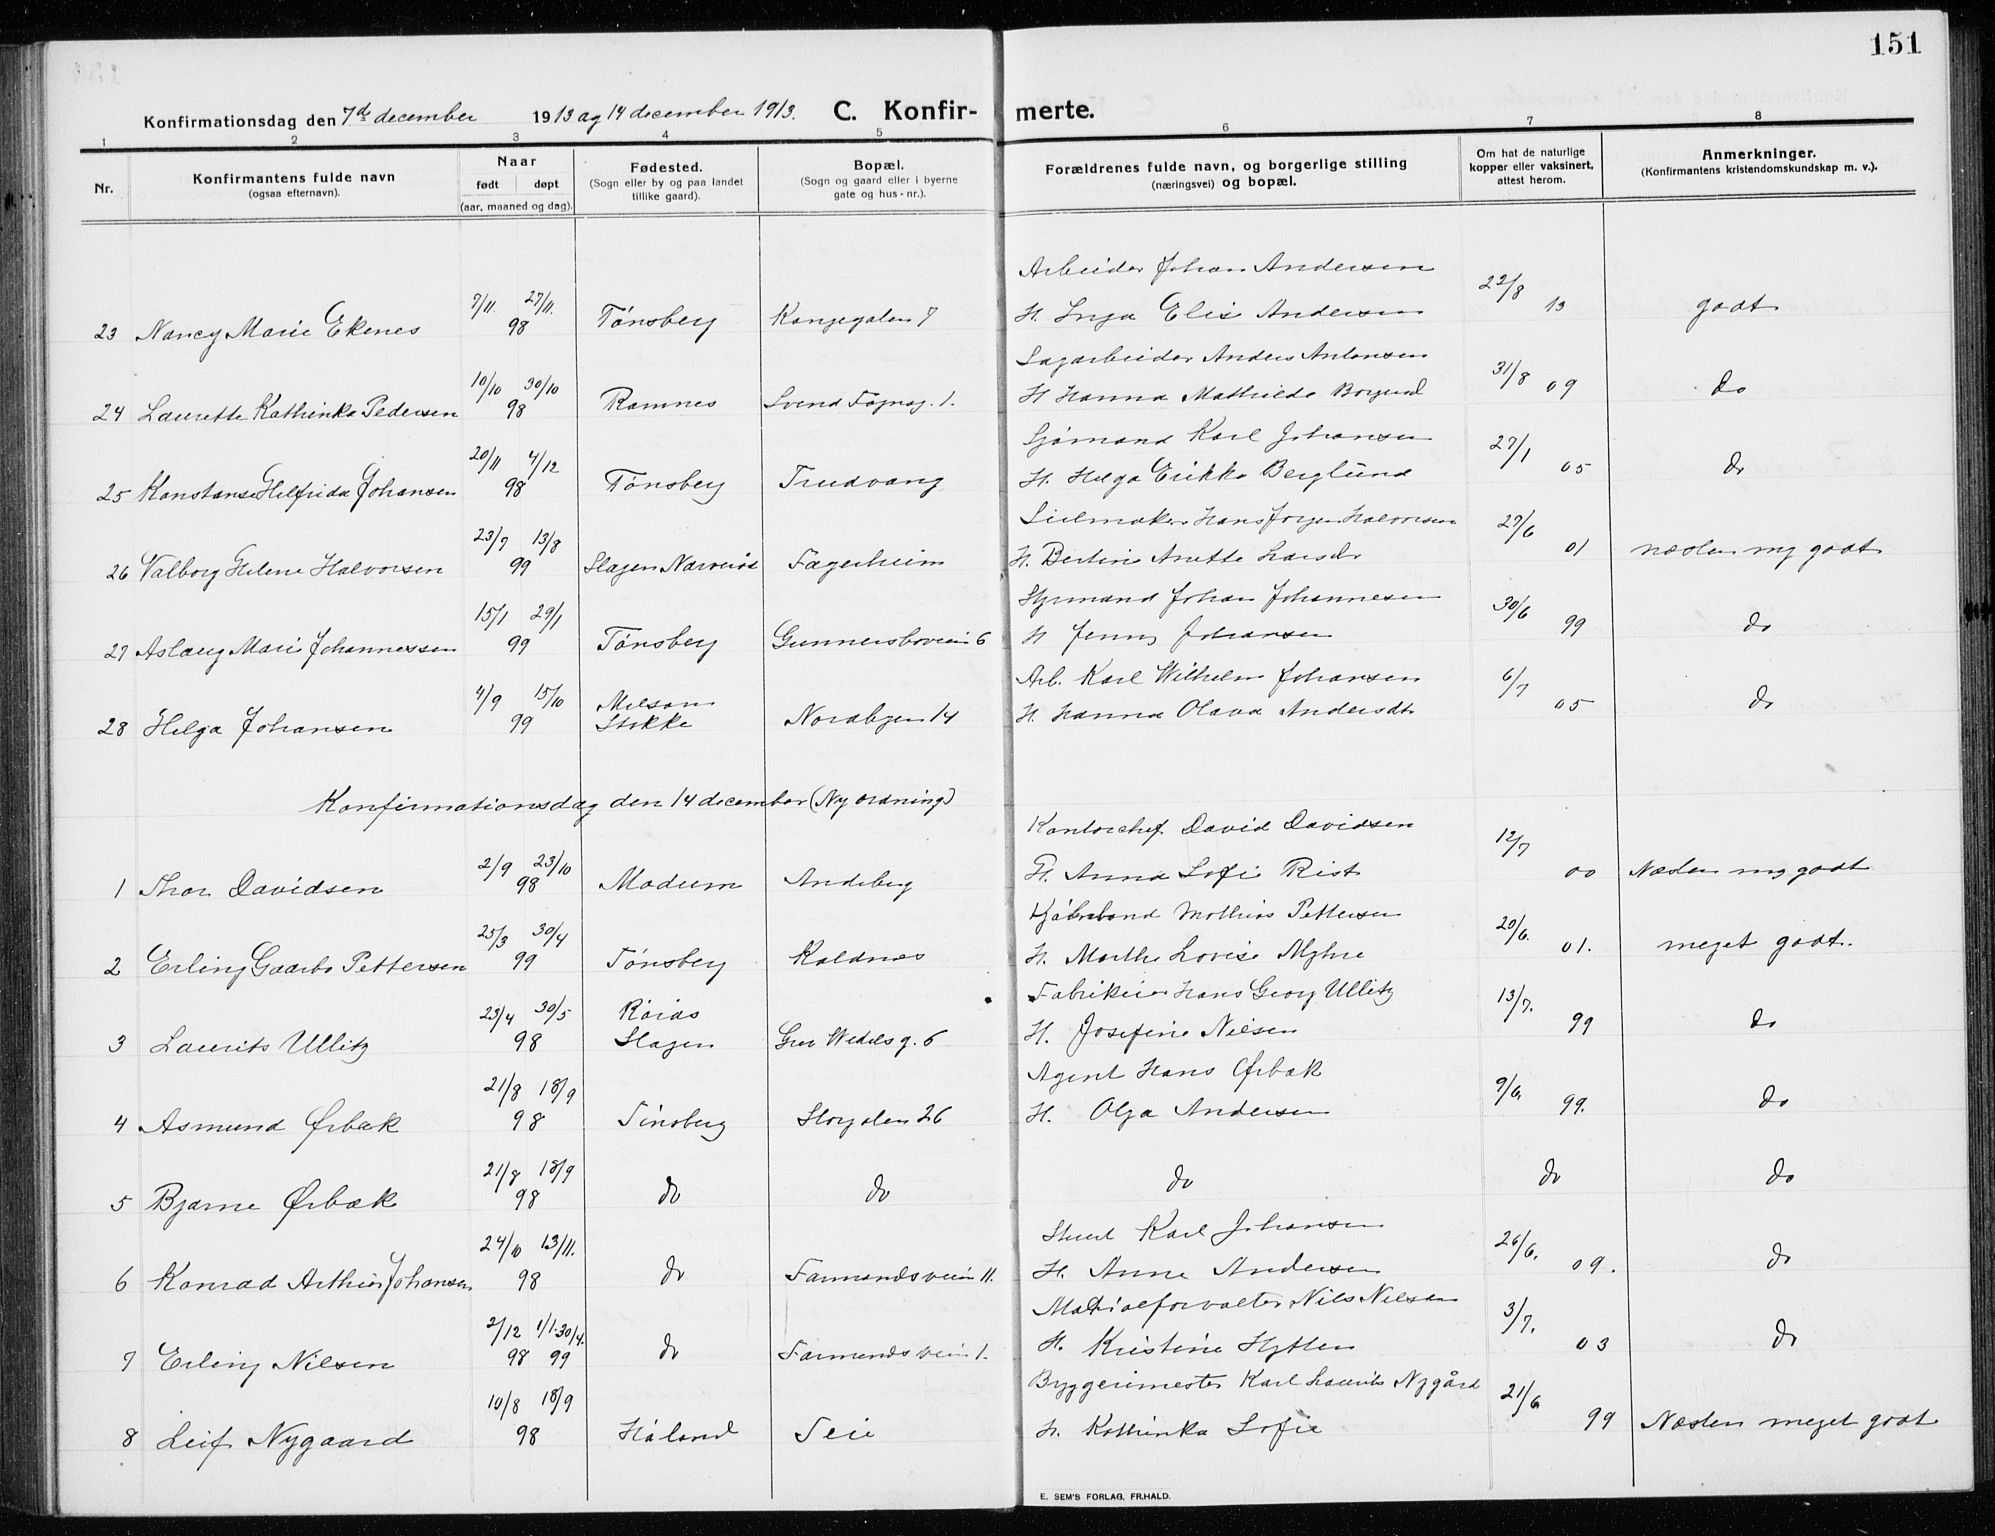 151
Konfirmationsdag den 7de december 1913 og 14 december 1913. C. Konfirmerte.
1 2 3 4 5 6 7 8
Nr. Konfirmantens fulde navn (ogsaa efternavn). Naar født døpt (aar, maaned og dag). Fødested. (Sogn eller by og paa landet tillike gaard). Bopæl. (Sogn og gaard eller i byerne gate og hus-nr.). Forældrenes fulde navn, og borgerlige stilling (næringsvei) og bopæl. Om hat de naturlige kopper eller vaksinert, attest herom. Anmerkninger. (Konfirmantens kristendomskundskap m. v.).
Arbeider Johan Andersen
23 Nancy Marie Ekenes 7/11 27/11 98 Tønsberg Kongegaten 7 H. Inga Elise Andersen 22/8 13 godt
Sagarbeider Anders Antonsen
24 Laurette Kathinka Pedersen 10/10 30/10 98 Ramnes Svend Føynsg. 1. H Hanna Mathilde Borgund 31/8 09 do
Sjømand Karl Johansen
25 Konstanse Helfrida Johansen 20/11 4/12 98 Tønsberg Trudvang H. Helga Erikka Berglund 27/1 05 do
Seilmaker Hans Jørgen Halvorsen
26 Valborg Helene Halvorsen 23/7 13/8 99 Slagen Narverød Fagerheim H. Bertine Anette Larsdr 27/6 01 næsten mg godt
Styrmand Johan Johannesen
27 Aslaug Marie Johannessen 15/1 29/1 99 Tønsberg Gunnersboveien 6 H Jenny Johansen 30/6 99 do
Arb. Karl Wilhelm Johansen
28 Helga Johansen 4/9 15/10 99 Melsom Stokke Nordbyen 14 H. Hanna Olava Andersdtr 6/7 05 do
Konfirmationsdag den 14 december (Ny ordning)
Kontorchef David Davidsen
1 Thor Davidsen 2/9 23/10 98 Modum Andeberg H. Anna Sofie Rist 12/7 00 Næsten mg godt
Kjøbmand Mathias Pettersen
2 Erling Gaarbo Pettersen 25/3 30/4 99 Tønsberg Kaldnes H. Marthe Lovise Myhre 20/6. 01. meget godt.
Fabrikeier Hans Georg Ullitz
3 Laurits Ullitz 23/4 30/5 98 Råiås Slagen Grev Wedels g. 6 H. Josefine Nielsen 13/7. 99 do
Agent Hans Ørbæk
4 Asmund Ørbæk 21/8 18/9 98 Tønsberg Storgaten 26 H. Olga Andersen 9/6. 99. do
5 Bjarne Ørbæk 21/8 18/9 98 do do do do do
Stuert Karl Johansen
6 Konrad Arthur Johansen 24/10 13/11. 98 do Farmandsveien 11. H. Anne Andersen 26/6. 09. do
Matrialforvalter Nils Nilsen
7 Erling Nilsen 2/12 1/1. 30/4. 98 99 do Farmandsveien 1. H. Kristine Hytten 3/7. 03 do
Byggemester Karl Laurits Nygård
8 Leif Nygaard 10/8 18/9 98 Håland Teie H. Kathinka Sofie 21/6 99 Næsten meget godt
E. SEM'S FORLAG, FR.HALD.